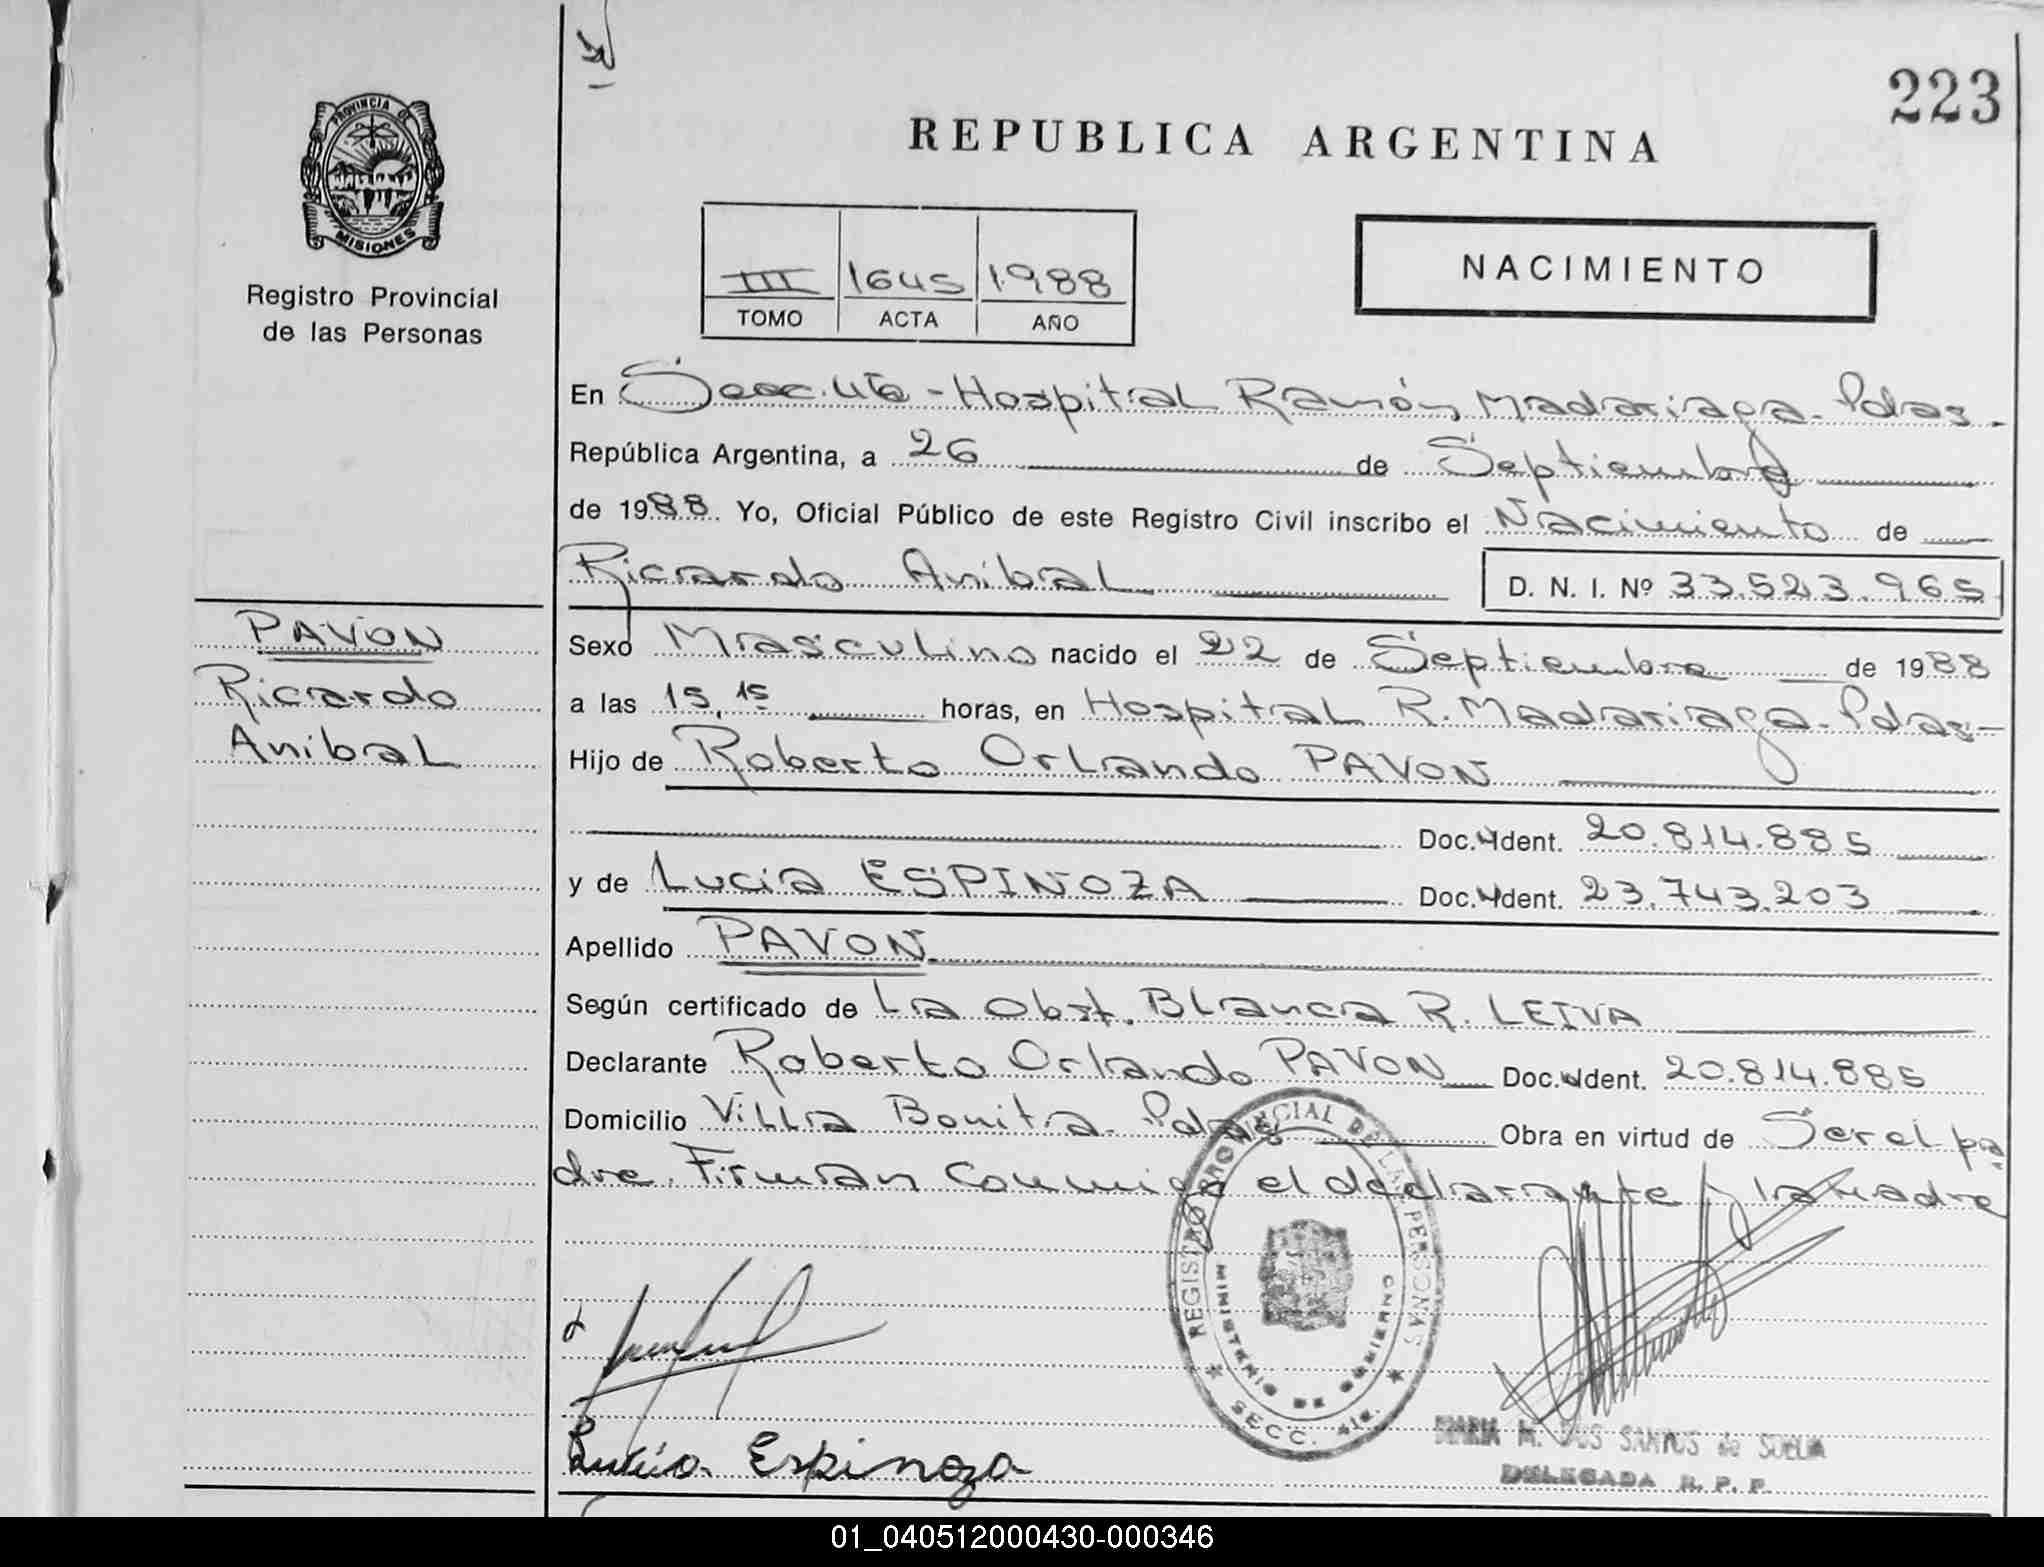 223
REPUBLICA ARGENTINA
PROVINCIA DE
MISIONES
Registro Provincial
de las Personas
III 1645 1988
TOMO ACTA AÑO
NACIMIENTO
En Secc. 4ta - Hospital Ramón Madariaga - Pdas -
República Argentina, a 26 de Septiembre
de 1988. Yo, Oficial Público de este Registro Civil inscribo el Nacimiento de
Ricardo Anibal D. N. I. Nº 33.523.965
PAVON
Ricardo
Anibal
Sexo Masculino nacido el 22 de Septiembre de 1988
a las 15,15 horas, en Hospital R. Madariaga - Pdas -
Hijo de Roberto Orlando PAVON
Doc. Ident. 20.814.885
y de Lucia ESPINOZA Doc. Ident. 23.743.203
Apellido PAVON
Según certificado de La Obst. Blanca R. LEIVA
Declarante Roberto Orlando PAVON Doc. Ident. 20.814.885
Domicilio Villa Bonita - Pdas Obra en virtud de Ser el pa
dre. Firman conmigo el declarante y la madre
REGISTRO PROVINCIAL DE LAS PERSONAS
MINISTERIO DE GOBIERNO
SECC. 4ta.
Lucia Espinoza
MARIA M. DOS SANTOS de
DELEGADA R. P. P.
01_040512000430-000346